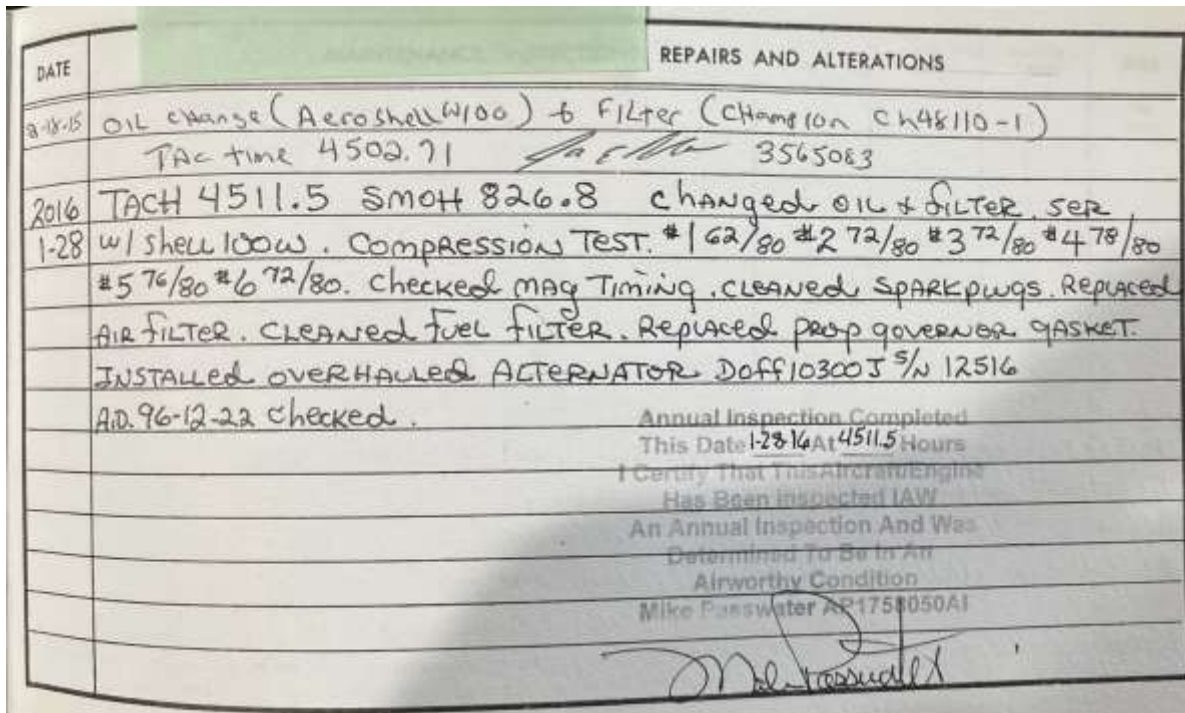 DATE
REPAIRS AND ALTERATIONS
8-18-15 OIL change (Aeroshell W100) & Filter (CHampion CH48110-1)
TAC time 4502.71 3565083
2016 TACH 4511.5 SMOH 826.8 changed OIL & FILTER. SER
1-28 w/ Shell 100W. COMPRESSION TEST. #1 62/80 #2 72/80 #3 72/80 #4 78/80
#5 76/80 #6 72/80. Checked MAG Timing. CLEANED SPARKPLUGS. Replaced
AIR FILTER. CLEANED FUEL FILTER. Replaced prop governor gASKET.
INSTALLED OVERHAULED ALTERNATOR DOFF10300J S/N 12516
A.D. 96-12-22 Checked.
Annual Inspection Completed
This Date 1-28-16 At 4511.5 Hours
I Certify That This Aircraft/Engine
Has Been Inspected IAW
An Annual Inspection And Was
Determined To Be In An
Airworthy Condition
Mike Passwater AP1758050AI